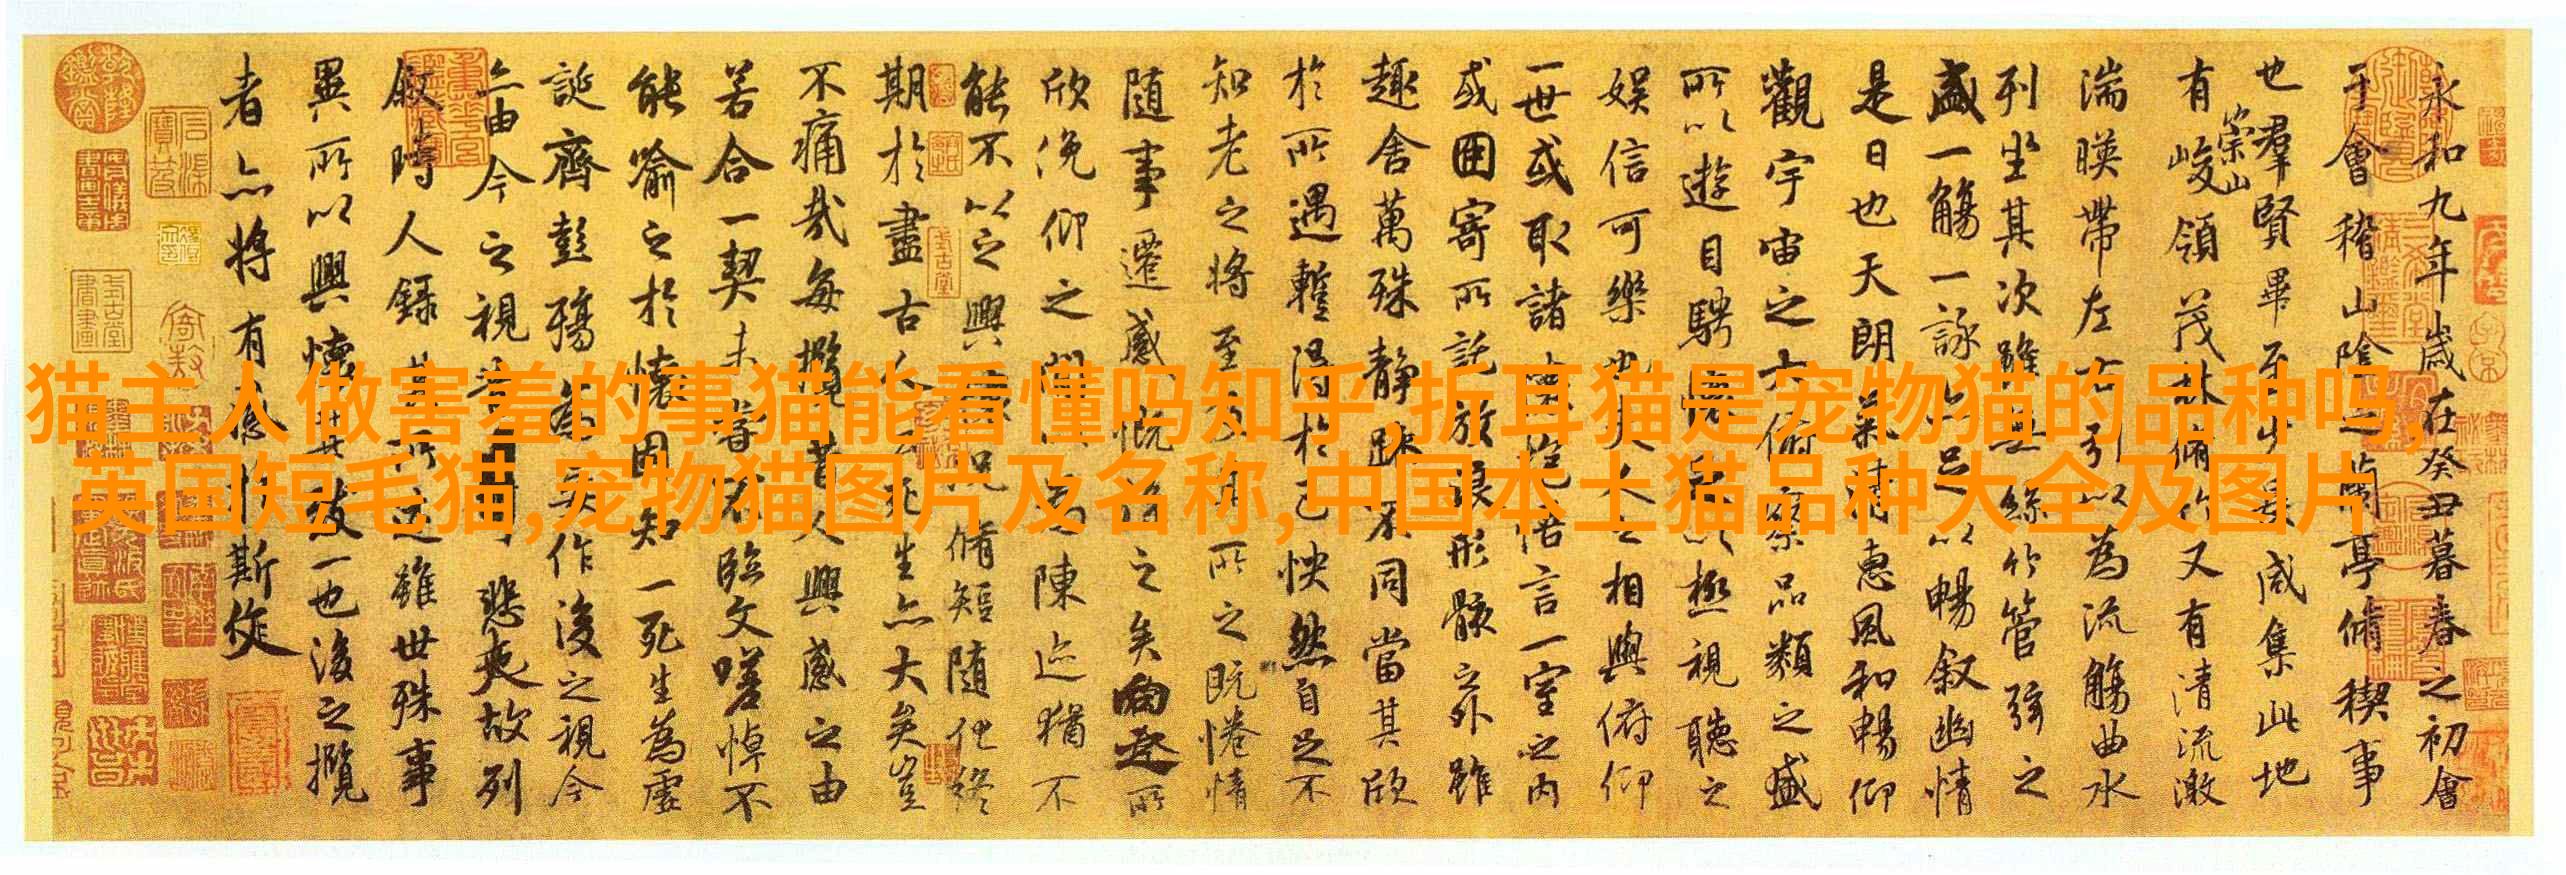 猫主人做害羞的事猫能看懂吗知乎,折耳猫是宠物猫的品种吗,
英国短毛猫,宠物猫图片及名称,中国本土猫品种大全及图片
永和九年歲在癸丑暮春之初會
于會稽山陰之蘭亭脩稧事
也羣賢畢至少長咸集此地
有崇山峻領茂林脩竹又有清流激
湍暎帶左右引以為流觴曲水
列坐其次雖無絲竹管弦之
盛一觴一詠亦足以暢叙幽情
是日也天朗氣清惠風和暢仰
觀宇宙之大俯察品類之盛
所以遊目騁懷足以極視聽之
娛信可樂也夫人之相與俯仰
一世或取諸懷抱悟言一室之內
或因寄所託放浪形骸之外雖
趣舍萬殊静躁不同當其欣
於所遇蹔得於己怏然自足不
知老之將至及其所之既惓情
随事遷感慨係之矣向之所
欣俛仰之閒以為陳迹猶不
能不以之興懷況脩短随化終
期於盡古人云死生亦大矣豈
不痛哉每攬昔人興感之由
若合一契未甞不臨文嗟悼不
能喻之於懷固知一死生為虛
誕齊彭殤為妄作後之視今
亦由今之視昔悲夫故列
叙時人録其所述雖世殊事
異所以興懷其致一也後之攬
者亦將有感於斯文